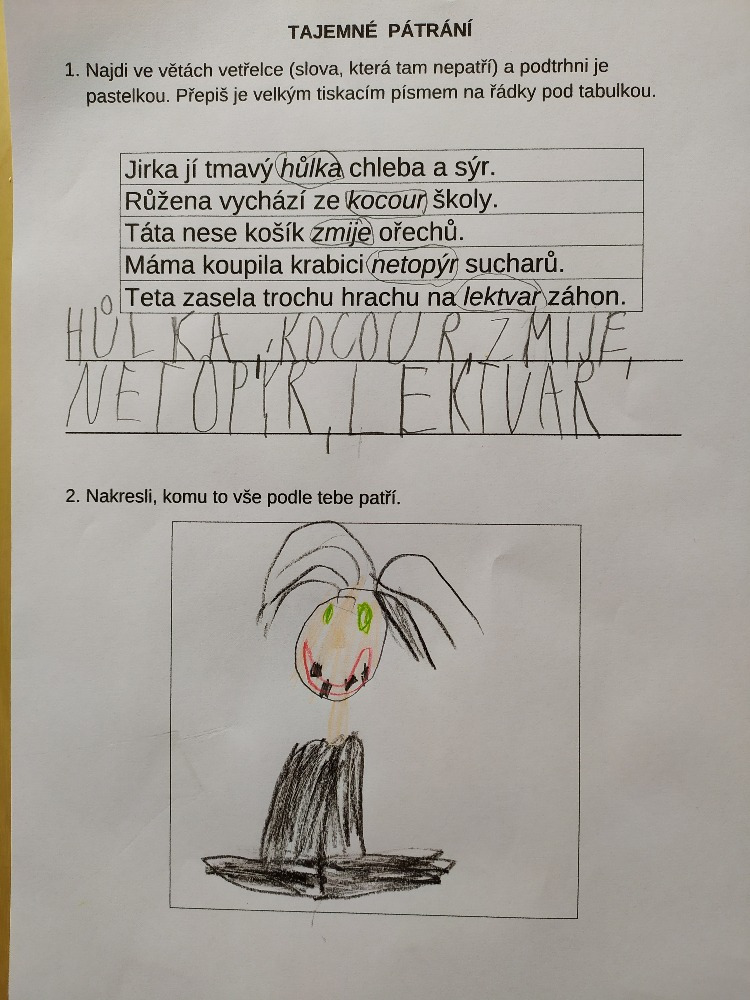 TAJEMNÉ PÁTRÁNÍ
1. Najdi ve větách vetřelce (slova, která tam nepatří) a podtrhni je
pastelkou. Přepiš je velkým tiskacím písmem na řádky pod tabulkou.
Jirka jí tmavý hůlka chleba a sýr.
Růžena vychází ze kocour školy.
Táta nese košík zmije ořechů.
Máma koupila krabici netopýr sucharů.
Teta zasela trochu hrachu na lektvar záhon.
HŮLKA, KOCOUR, ZMIJE,
NETOPÝR, LEKTVAR
2. Nakresli, komu to vše podle tebe patří.